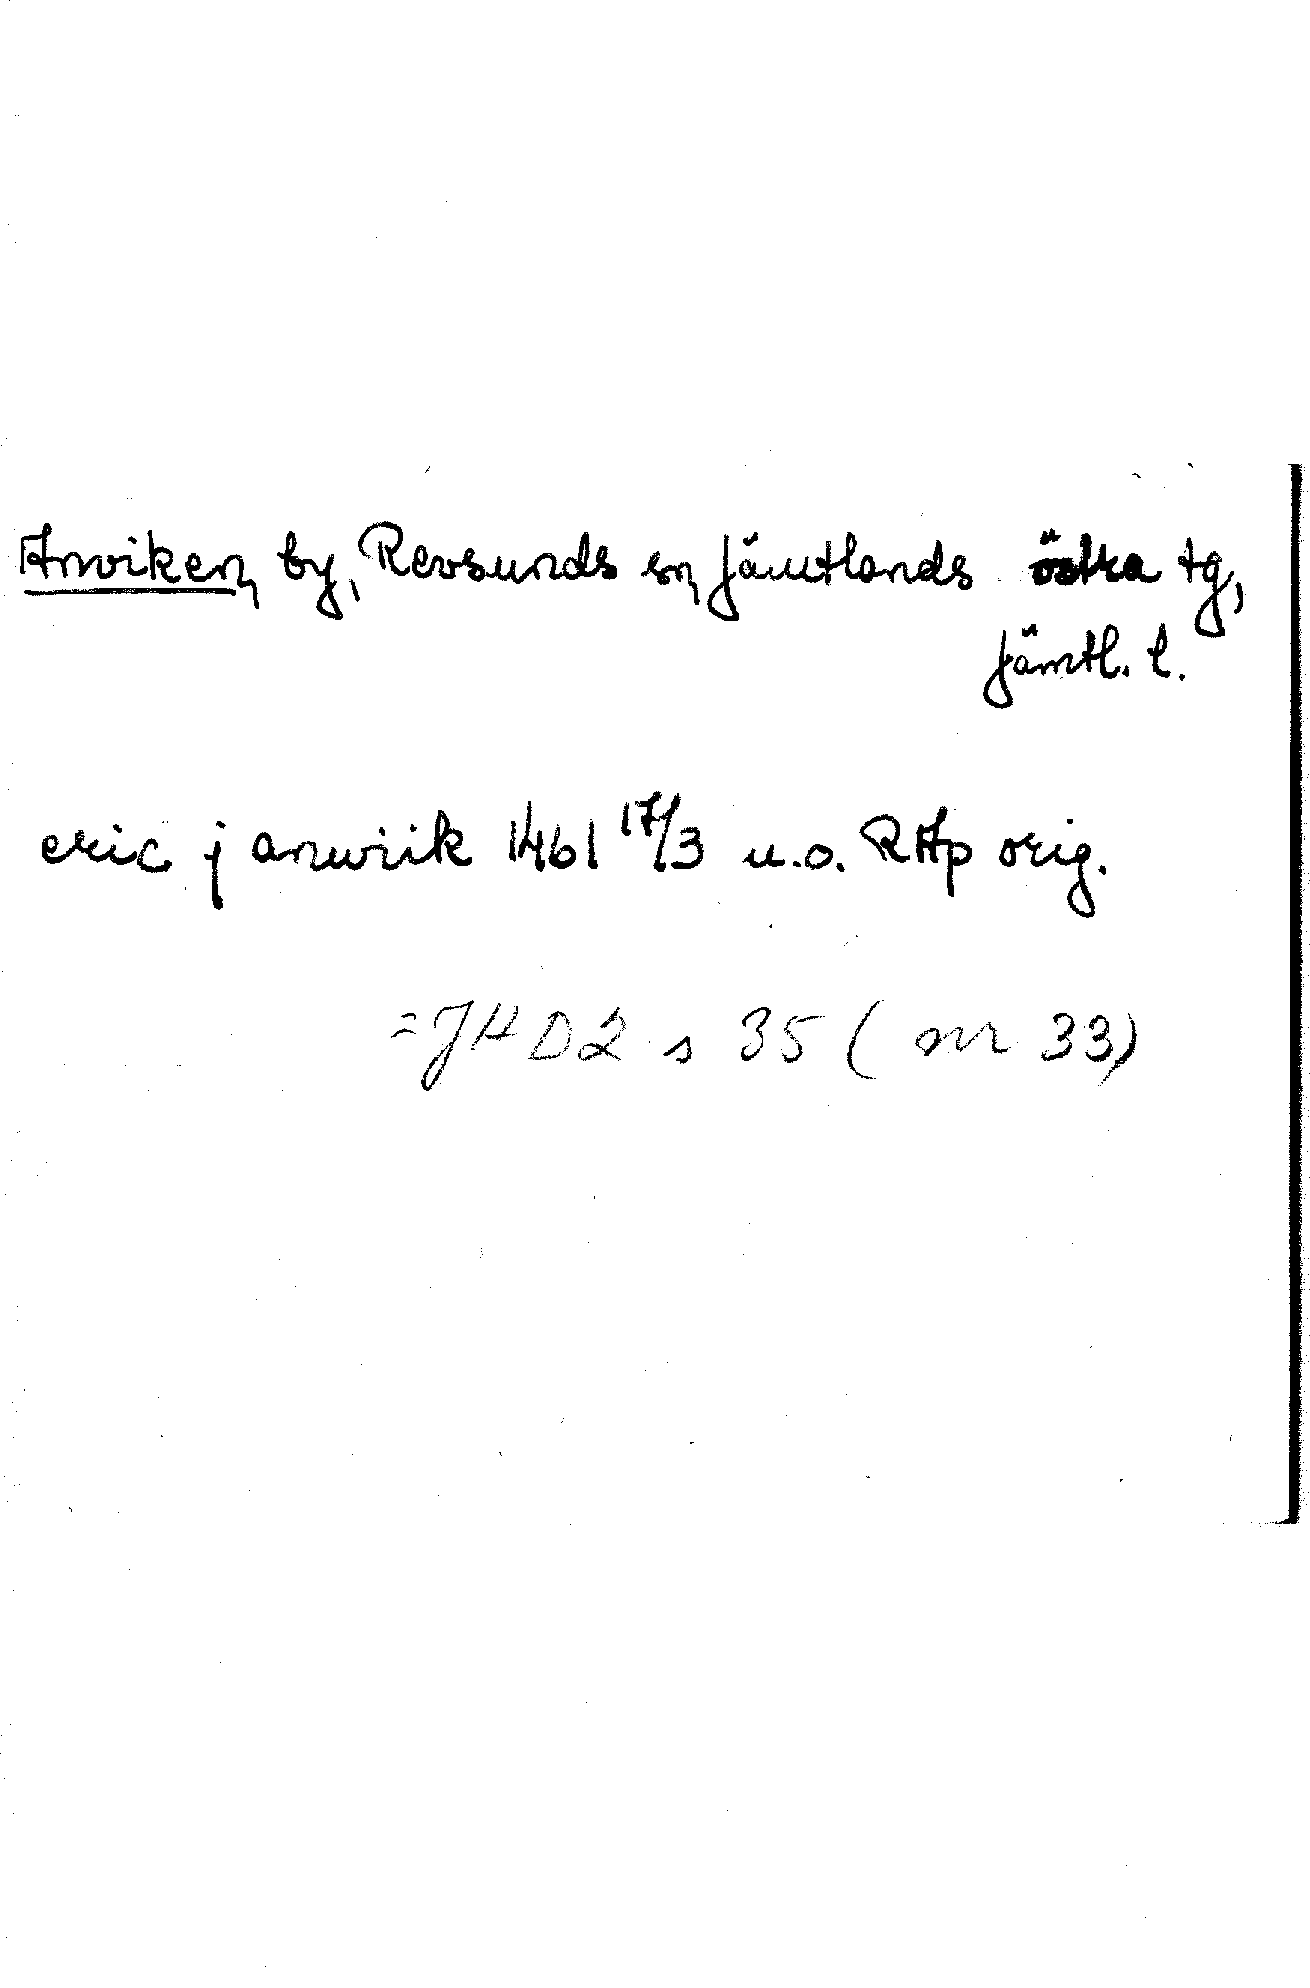 Anviken, by, Revsunds sn, Jämtlands östra tg,
Jämtl. l.
eric j anwiik 1461 17/3 u.o. RAp orig.
=JHD2 s 35 ( nr 33)